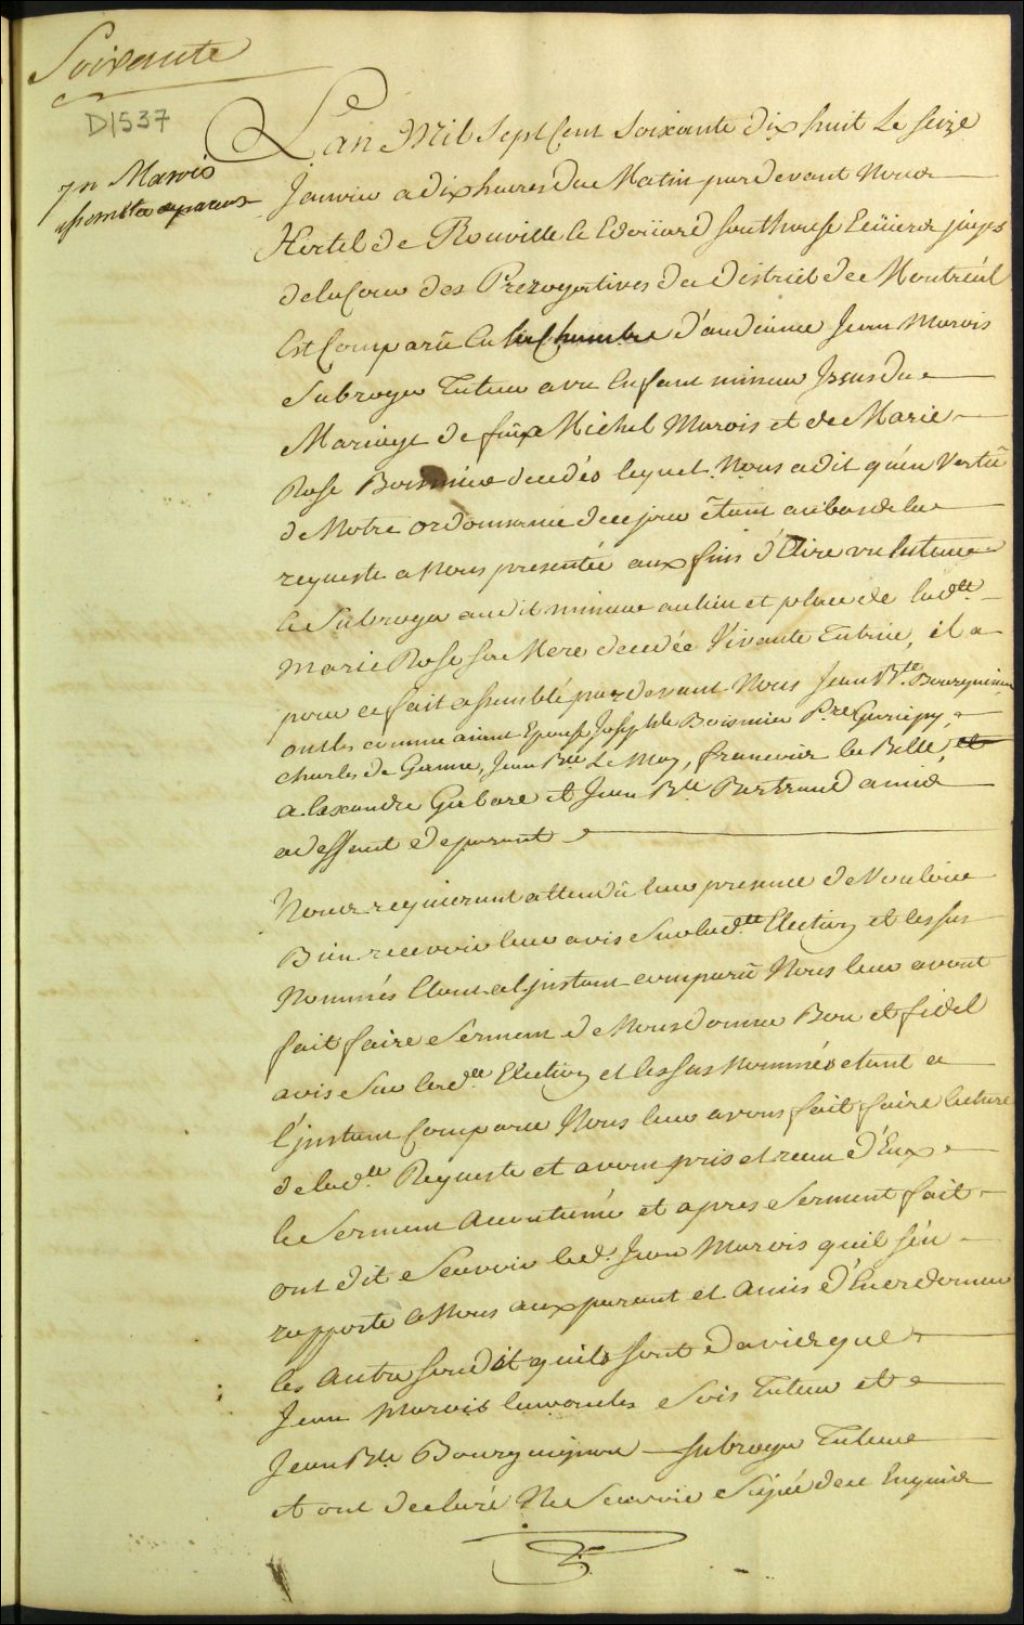 Soixante
D1537
Lan Mil Sept Cent Soixante dix huit Le seize
jn Marois
Janvier a dix heures du Matin pardevant Nous
assemblee de parens
Hertel de Rouville & Edoüard Southouse Ecüiers juges
de la Cour des Prerogatives du district de Montreal
Est Comparü en la Chambre d'audience Jean Marois
Subroger Tuteur a un Enfant mineur Issus du
Mariage de feüx Michel Marois et de Marie
Rose Boismier decedés lequel Nous a dit qu'en Vertü
de Notre ordonnance de ce jour étant au bas de la
requeste a Nous presentée aux fins d'Elire un tuteur
& Subroger audit mineur au lieu et place de ladte
Marie Rose sa Mere decedée Vivante Tutrice, il a
pour ce fait assemblé pardevant Nous Jean Bte Bourguinon
oncles comme aiant Epousé Josephte Boismier Pre Guerripy,
Charles De Ganne, Jean Bte Le May, francois la Belle, et
alexandre Gibare et Jean Bte Bertrand amis
a deffaut de parent
Nous requierant attendü leur presence de Vouloir
Bien recevoir leur avis Sur ladte Election et les sus
Nommés Etant a l'jnstant comparü Nous leur avont
fait faire Serment de Nous donner Bon et fidel
avis Sur ladte Election et les sus Nommés etant a
l'jnstant Comparu Nous leur avons fait faire lecture
de ladte Requeste et avons pris et recu d'Eux
le Serment Accoutumé et apres Serment fait
ont dit Scavoir ledt Jean Marois quil s'en
rapporte a Nous aux parent et Amis d'En ordonner
les Autre ont dit quils sont d'avis que
Jean Marois leur oncles Sois Tuteur et
Jean Bte Bourguignon Subroger Tuteur
et ont declaré Ne Scavoir Signé de ce Enquis